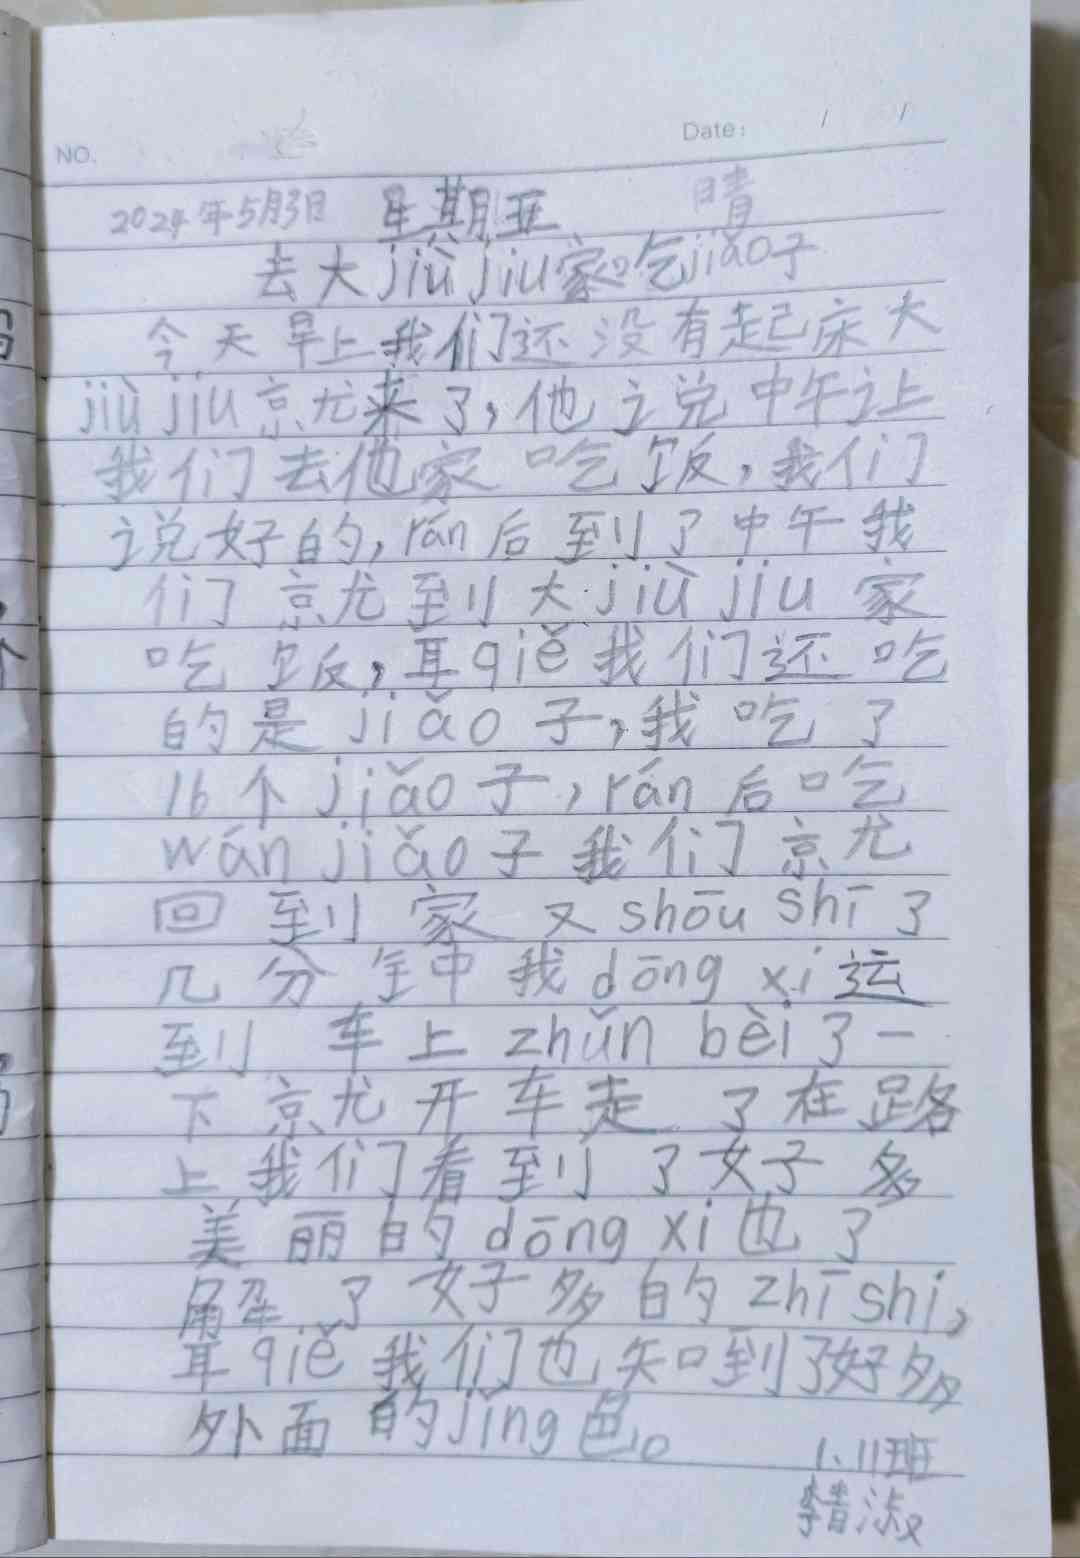 NO.
Date: / /
2024年5月3日 星期五 晴
去大jiù jiu家吃jiǎo子
今天早上我们还没有起床大
jiù jiu京尤来了,他说中午让
我们去他家吃饭,我们
说好的,rán后到了中午我
们京尤到大jiù jiu家
吃饭,耳qiě我们还吃
的是jiǎo子,我吃了
16个jiǎo子,rán后吃
wán jiǎo子我们京尤
回到家又shōu shī了
几分钟我dōng xi运
到车上zhǔn bèi了一
下京尤开车走了在路
上我们看到了好多
美丽的dōng xi也了
解了好多的zhī shi,
耳qiě我们也知到了好多
外面的jǐng色。
1、11班
淑